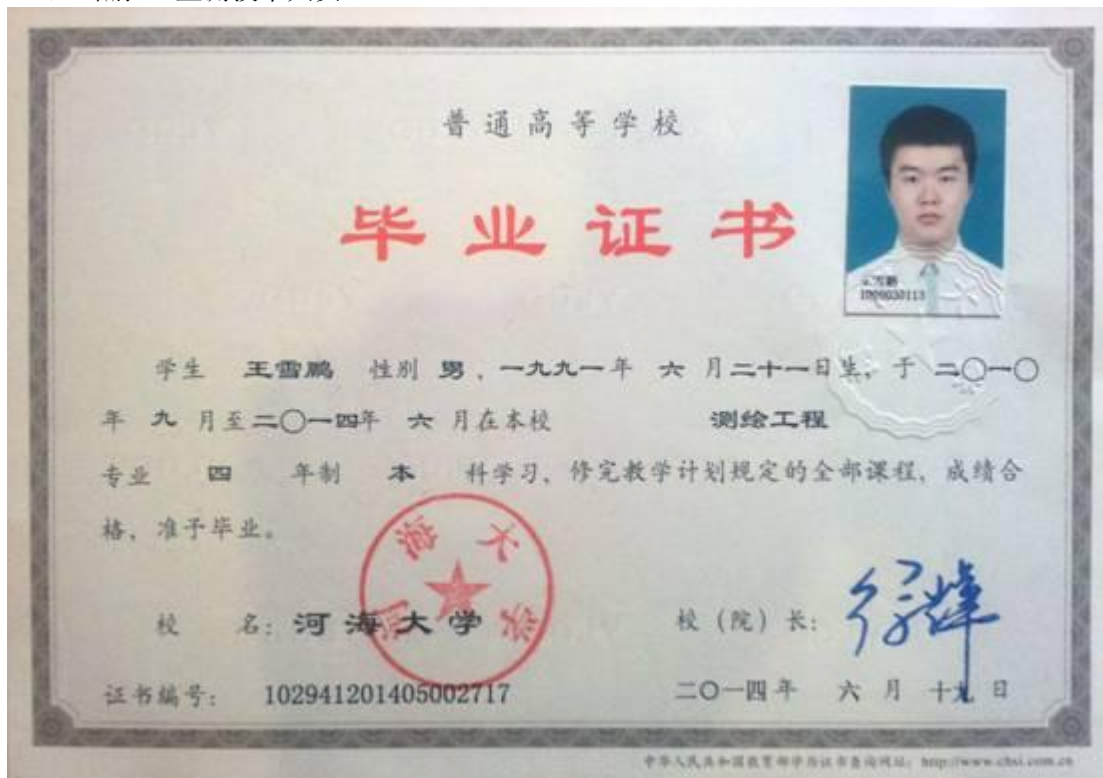 普通高等学校
毕业证书
1006030113
学生 王雪鹏 性别 男 、一九九一年 六 月二十一日生，于 二〇一〇
年 九 月至二〇一四年 六 月在本校 测绘工程
专业 四 年制 本 科学习、修完教学计划规定的全部课程，成绩合
格、准予毕业。
河海大学
校 名：河海大学 校（院）长：
证书编号： 102941201405002717 二〇一四年 六 月 十九 日
中华人民共和国教育部学历证书查询网址：http://www.chsi.com.cn